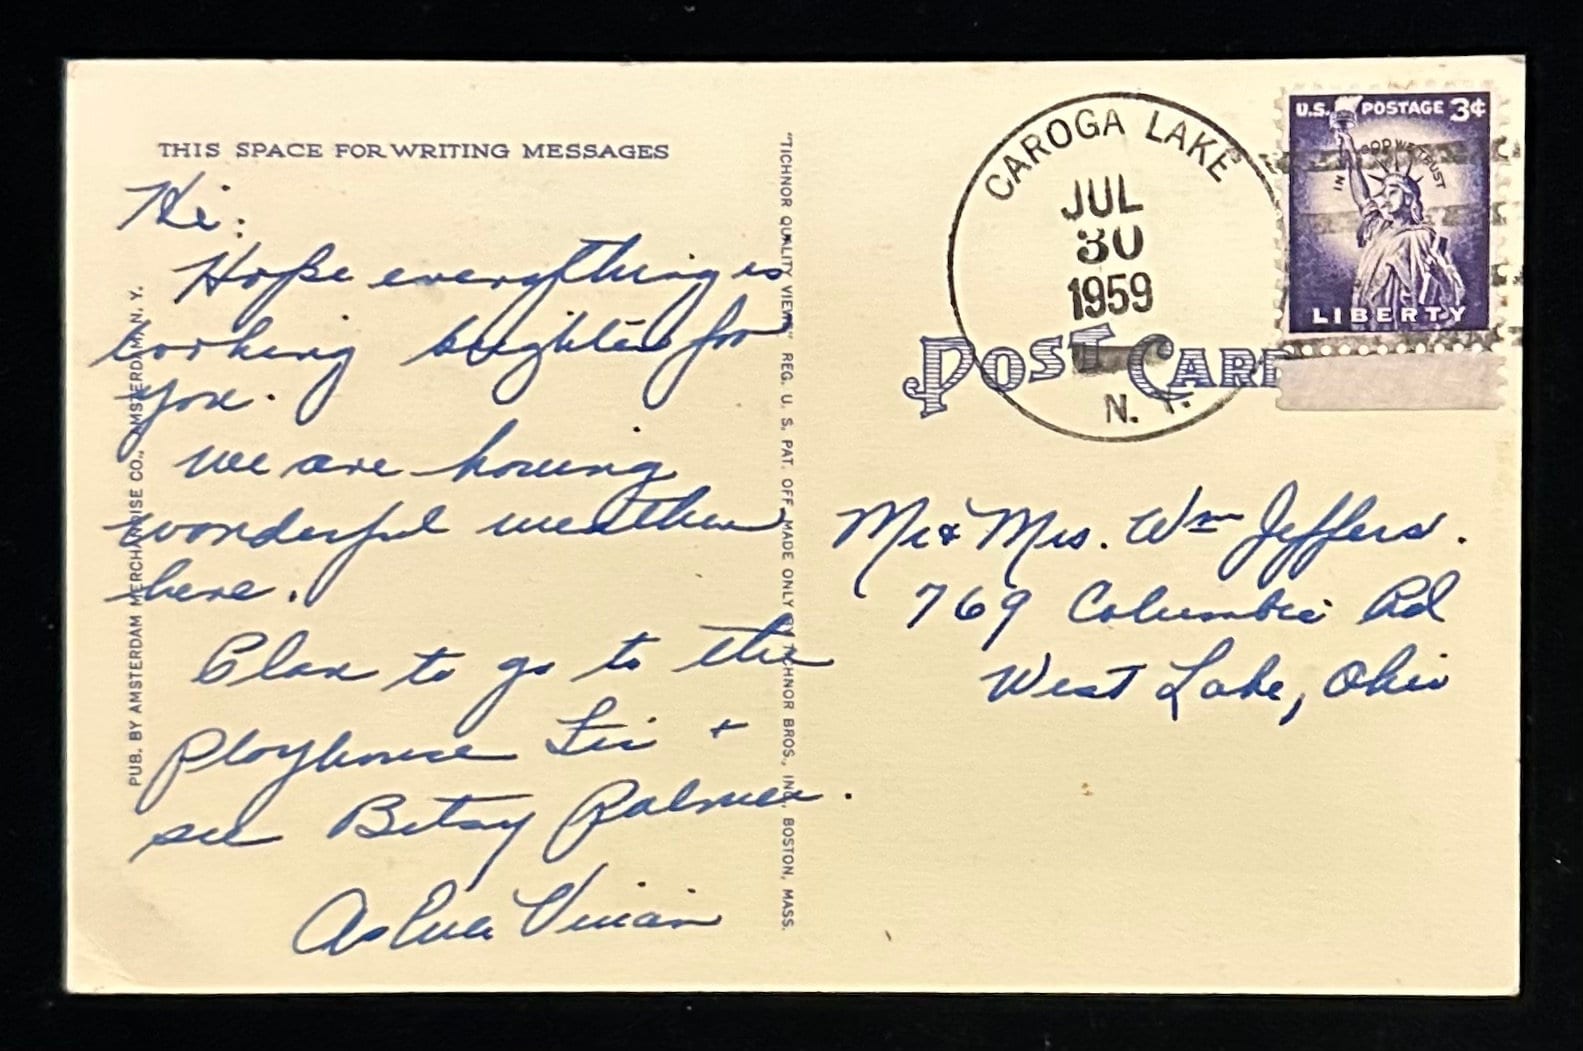 THIS SPACE FOR WRITING MESSAGES
Hi:
Hope everything is
looking brighter for
you.
We are having
wonderful weather
here.
Plan to go to the
Playhouse Fri +
see Betsy Palmer.
As Ever Vivian
PUB. BY AMSTERDAM MERCHANDISE CO., AMSTERDAM, N. Y.
"TICHNOR QUALITY VIEWS" REG. U. S. PAT. OFF. MADE ONLY BY TICHNOR BROS., INC., BOSTON, MASS.
CAROGA LAKE
JUL
30
1959
N. Y.
U.S. POSTAGE 3¢
IN GOD WE TRUST
LIBERTY
POST CARD
Mr & Mrs. Wm Jeffers.
769 Columbia Rd
West Lake, Ohio